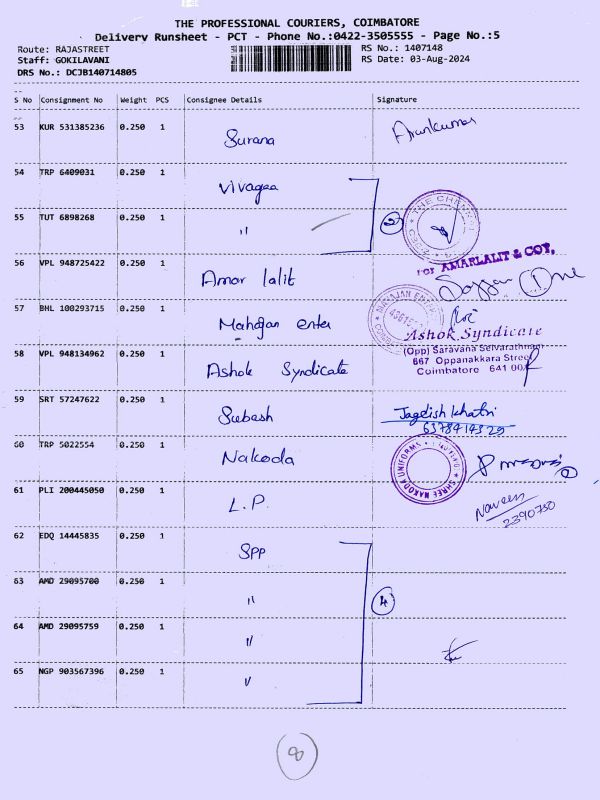 THE PROFESSIONAL COURIERS, COIMBATORE
Delivery Runsheet - PCT - Phone No.:0422-3505555 - Page No.:5
Route: RAJASTREET RS No.: 1407148
Staff: GOKILAVANI RS Date: 03-Aug-2024
DRS No.: DCJB140714805
S No Consignment No Weight PCS Consignee Details Signature
53 KUR 531385236 0.250 1 Surana Arunkumar
54 TRP 6409031 0.250 1 Vivagaa
55 TUT 6898268 0.250 1 " 2 THE CHENNAI
56 VPL 948725422 0.250 1 Amar lalit
For AMARLALIT & COY.
57 BHL 100293715 0.250 1 Mahajan enter
MAHAJAN ENTER
58 VPL 948134962 0.250 1 Ashok Syndicate
Ashok Syndicate
(Opp) Saravana Selvarathnam
667 Oppanakkara Street
Coimbatore 641 001
59 SRT 57247622 0.250 1 Subash Jagdish Khatri
6378414329
60 TRP 5022554 0.250 1 Nakoda
SHREE NAKODA UNIFORMS
61 PLI 200445050 0.250 1 L.P. Naveen
2390750
62 EDQ 14445835 0.250 1 SPP
63 AMD 29095700 0.250 1 " 4
64 AMD 29095759 0.250 1 "
65 NGP 903567396 0.250 1 "
8